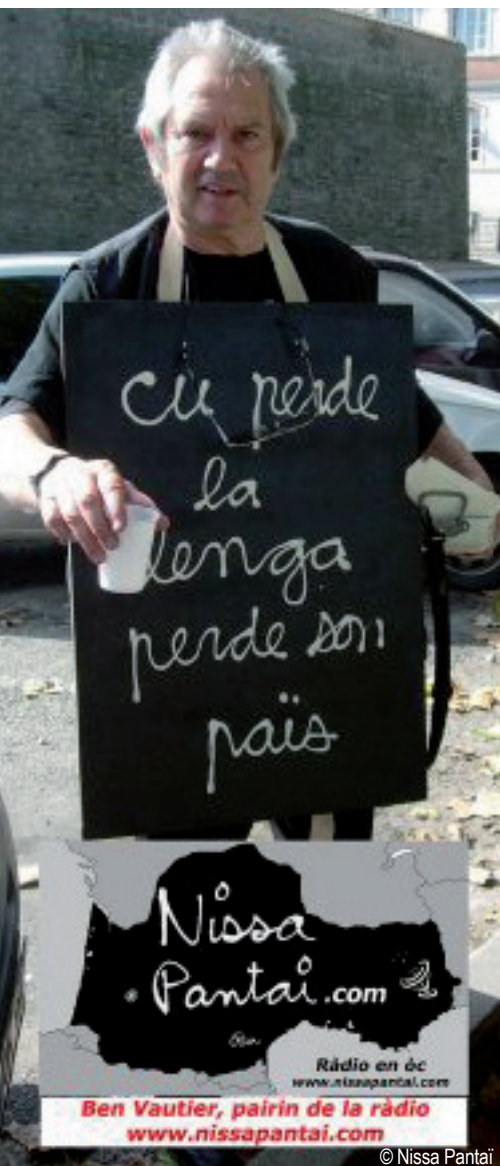 cu perde
la
lenga
perde son
païs
Nissa
Pantai.com
Ben
Ràdio en òc
www.nissapantai.com
Ben Vautier, pairin de la ràdio
www.nissapantai.com
© Nissa Pantaï